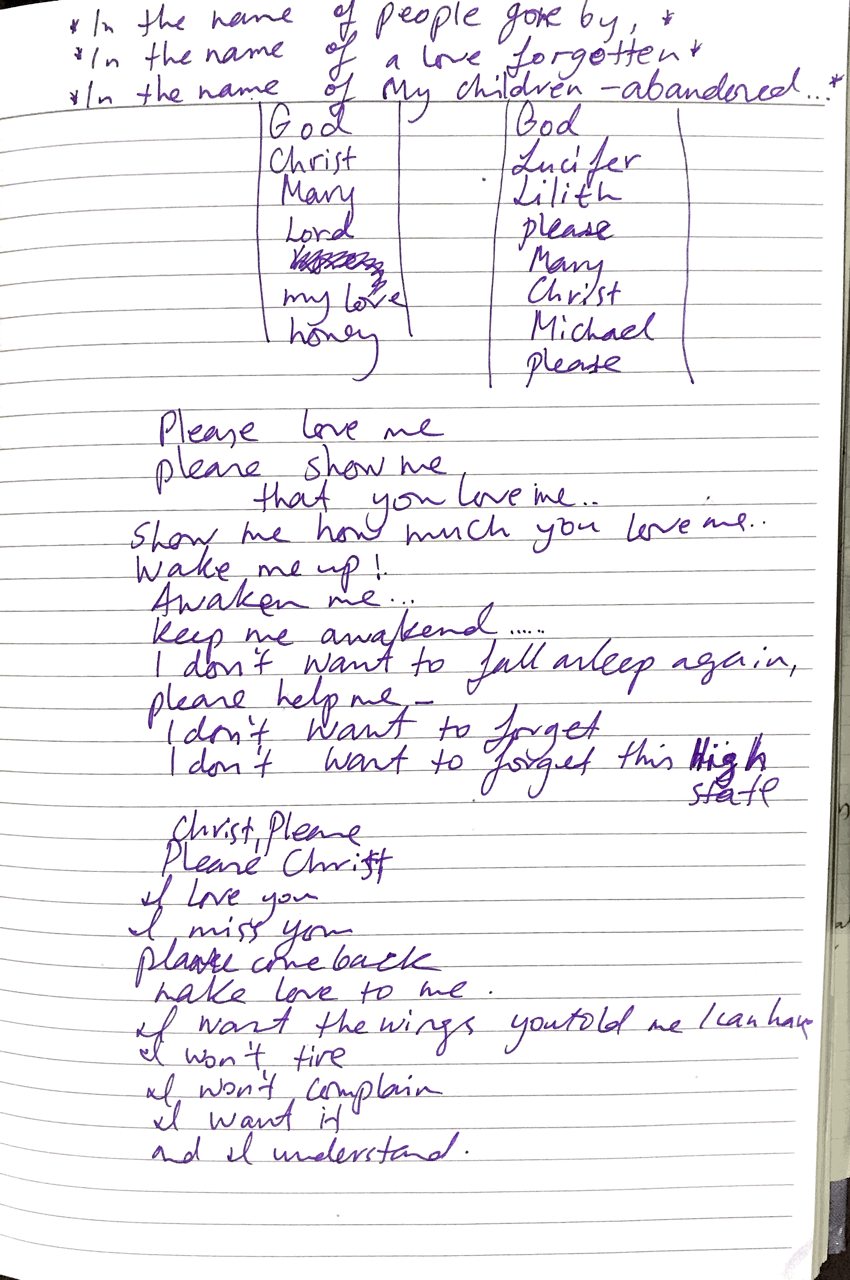 *In the name of people gone by, *
*In the name of a love forgotten*
*In the name of My children - abandoned...*
God
Christ
Mary
Lord
my love
honey
God
Lucifer
Lilith
please
Mary
Christ
Michael
please
Please love me
please show me
that you love me..
Show me how much you love me..
Wake me up!
Awaken me...
Keep me awakend.....
I don't want to fall asleep again,
please help me -
I don't want to forget
I don't want to forget this High
state
Christ, Please
Please Christ
I love you
I miss you
please come back
make love to me.
I want the wings you told me I can have
I won't tire
I won't complain
I want it
and I understand.